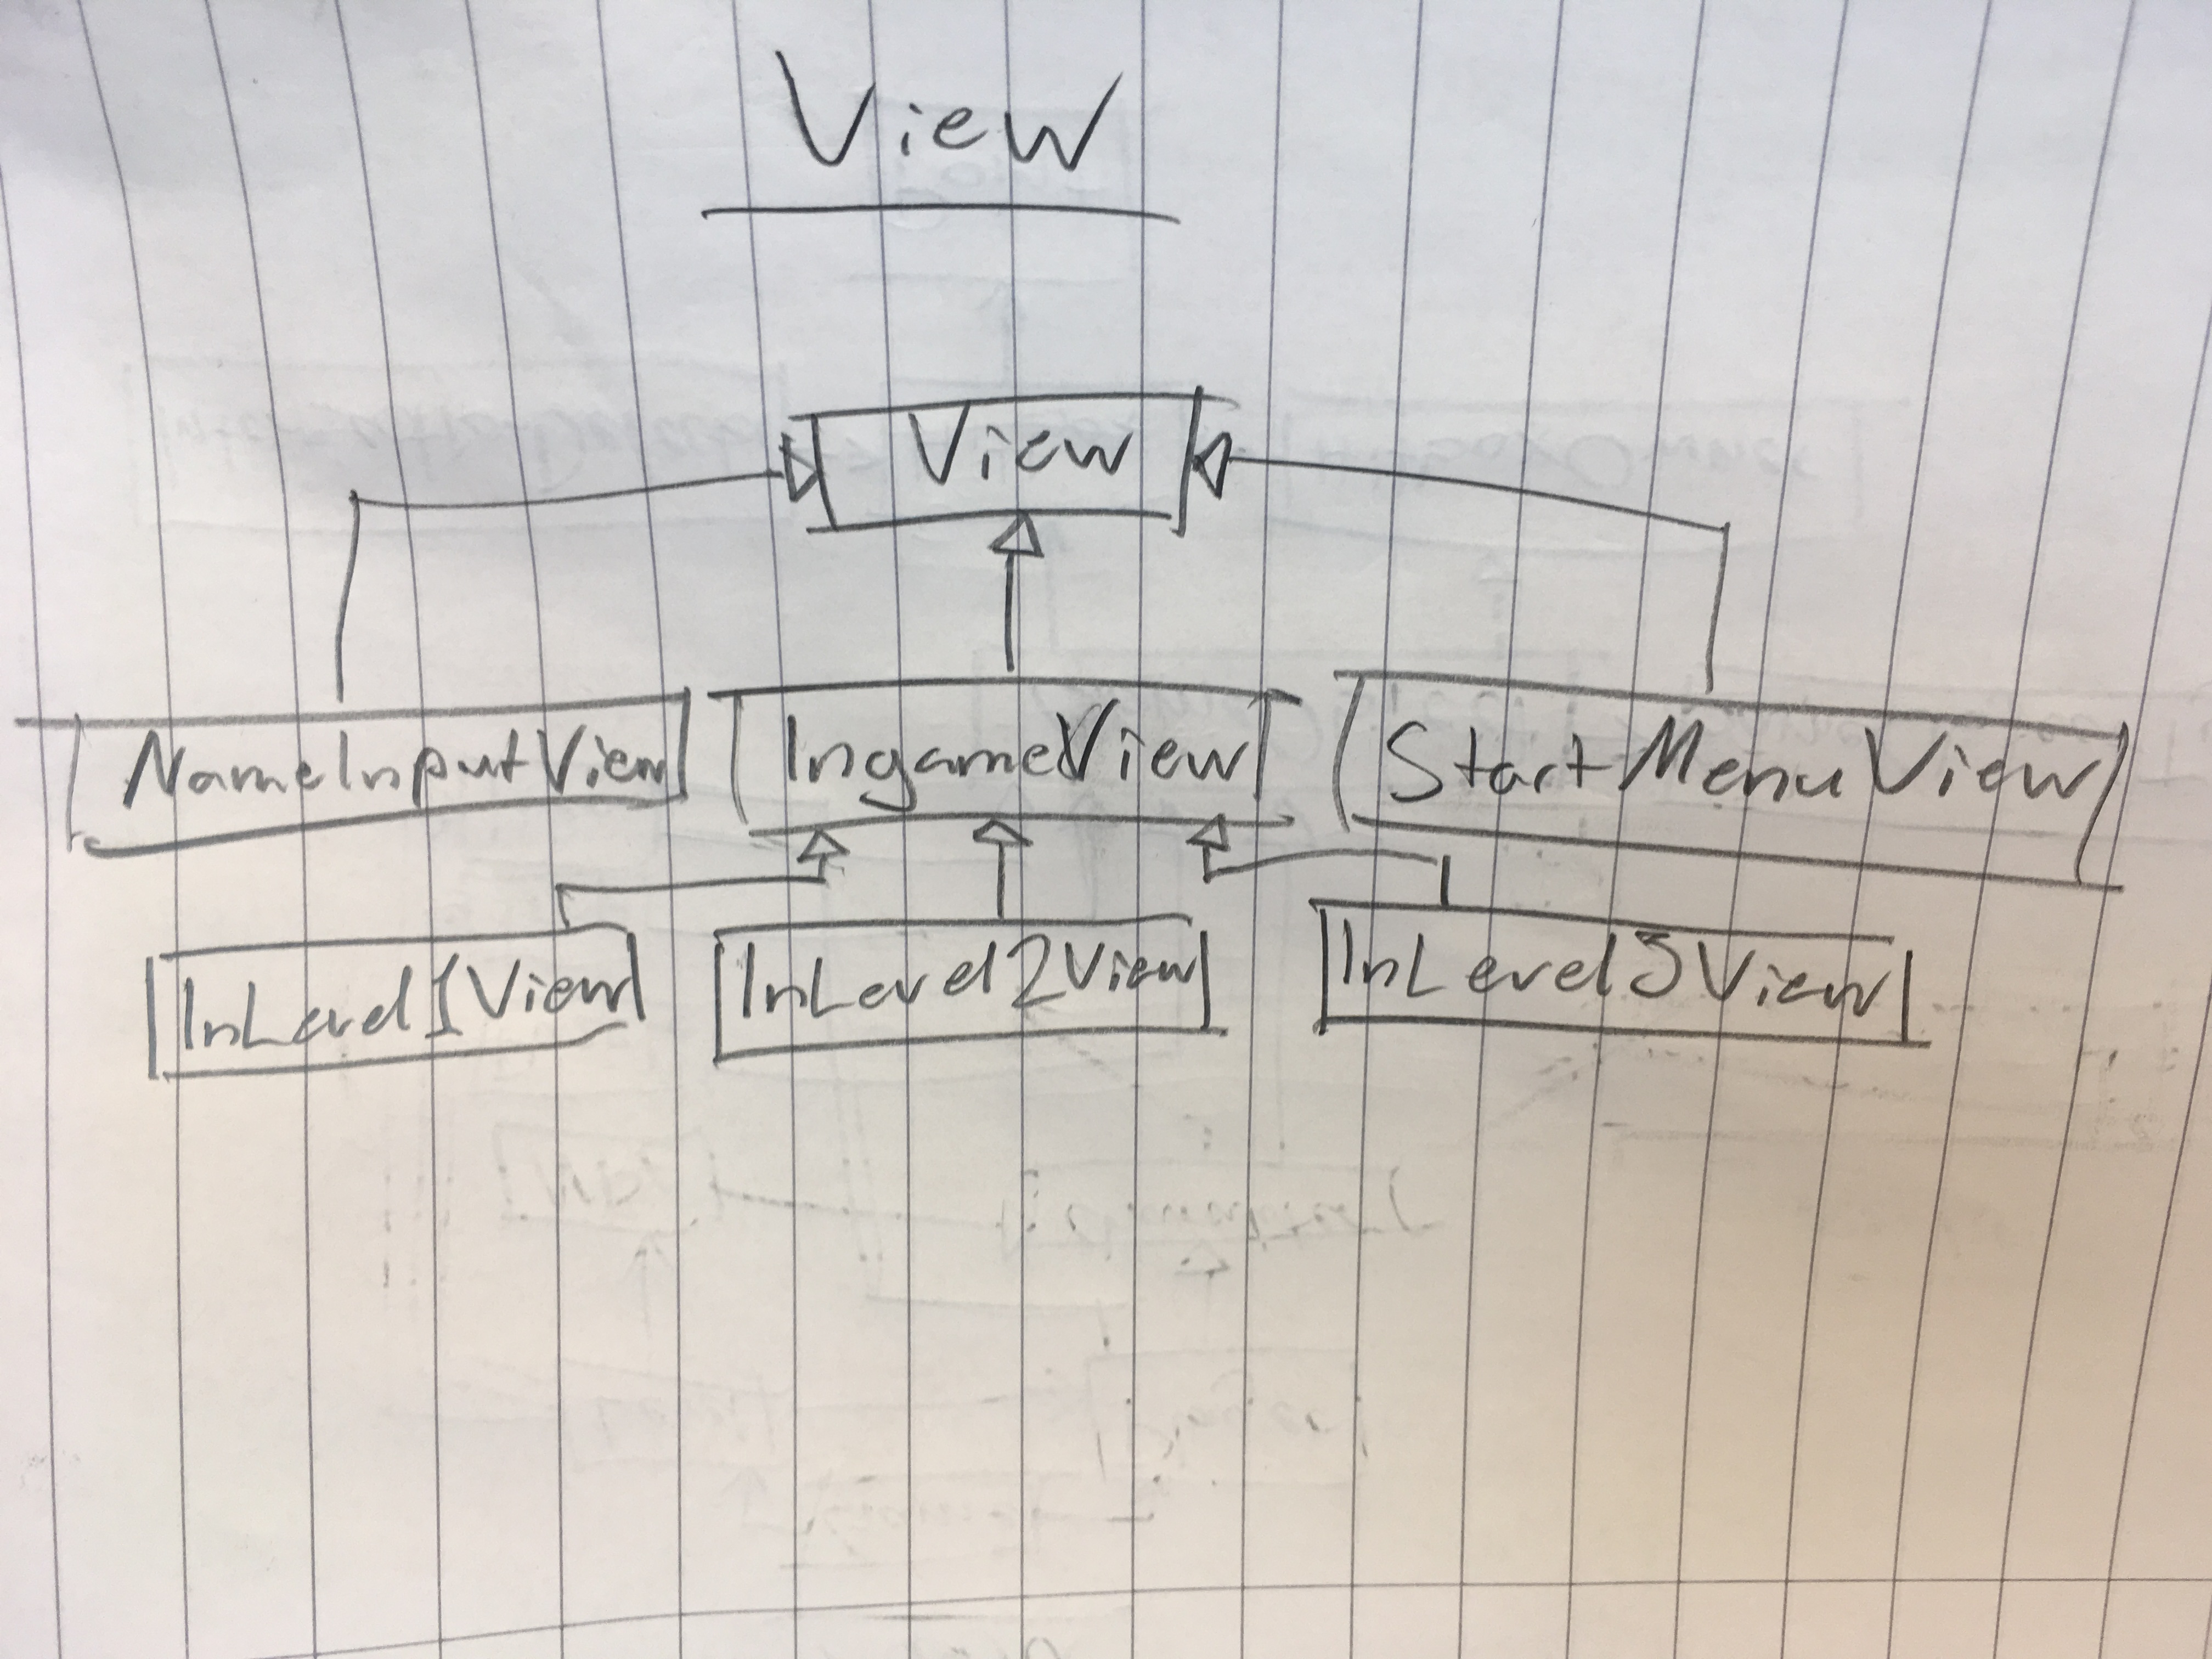 View
View
NameInputView
IngameView
StartMenuView
InLevel1View
InLevel2View
InLevel3View